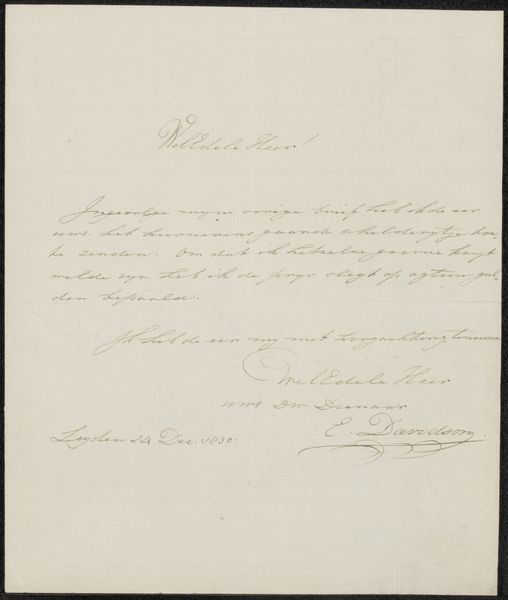 WelEdele Heer!
Ingevolge mijne vorige brief heb ik de eer
UwE. het hiernevens gaande schilderijtje toe
te zenden. Om dat ik hetzelve gaarne kwyt
wilde zyn heb ik de prys slegt op agtien gul-
den bepaald.
Ik heb de eer my met hoogachting te noemen
WelEdele Heer
UwE Dw Dienaar
E. Davidson.
Leyden 24 Dec. 1830.